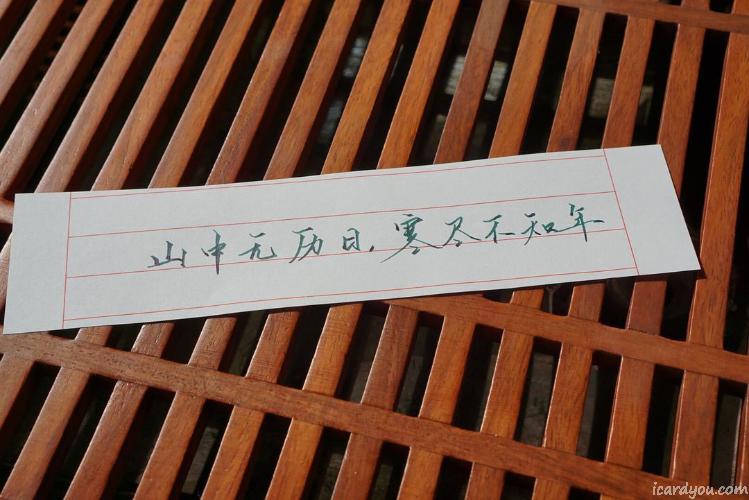 山中无历日,寒尽不知年
icardyou.com